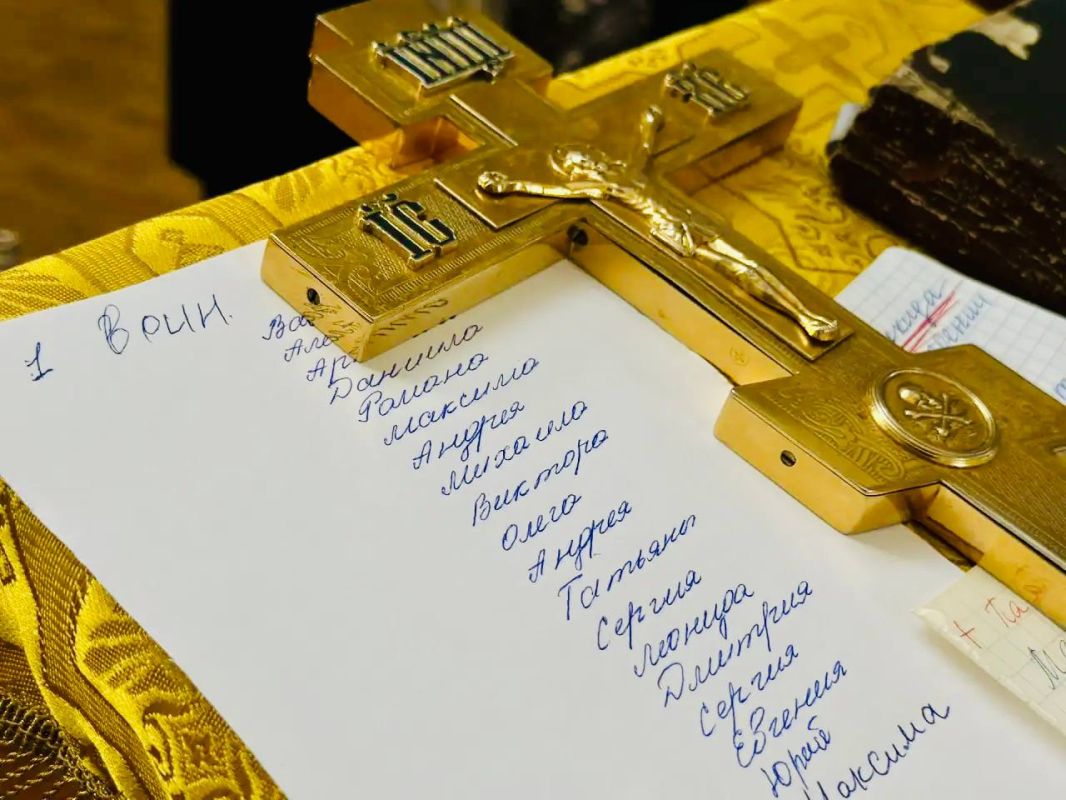 ІНЦІ
ІС
ХС
1 Воин.
Даниила
Романа
Максима
Андрея
Михаила
Виктора
Олега
Андрея
Татьяны
Сергия
Леонида
Дмитрия
Сергия
Евгения
Юрий
Максима